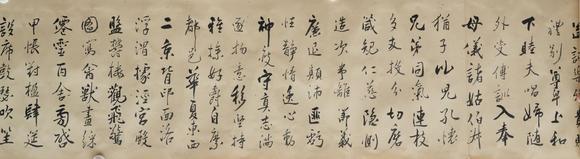 禮別尊卑上和
下睦夫唱婦隨
外受傅訓入奉
母儀諸姑伯叔
猶子比兒孔懷
兄弟同氣連枝
交友投分切磨
箴規仁慈隱惻
造次弗離節義
廉退顛沛匪虧
性靜情逸心動
神疲守真志滿
逐物意移堅持
雅操好爵自縻
都邑華夏東西
二京背邙面洛
浮渭據涇宮殿
盤鬱樓觀飛驚
圖寫禽獸畫綵
僊靈丙舍傍啟
甲帳對楹肆筵
設席鼓瑟吹笙